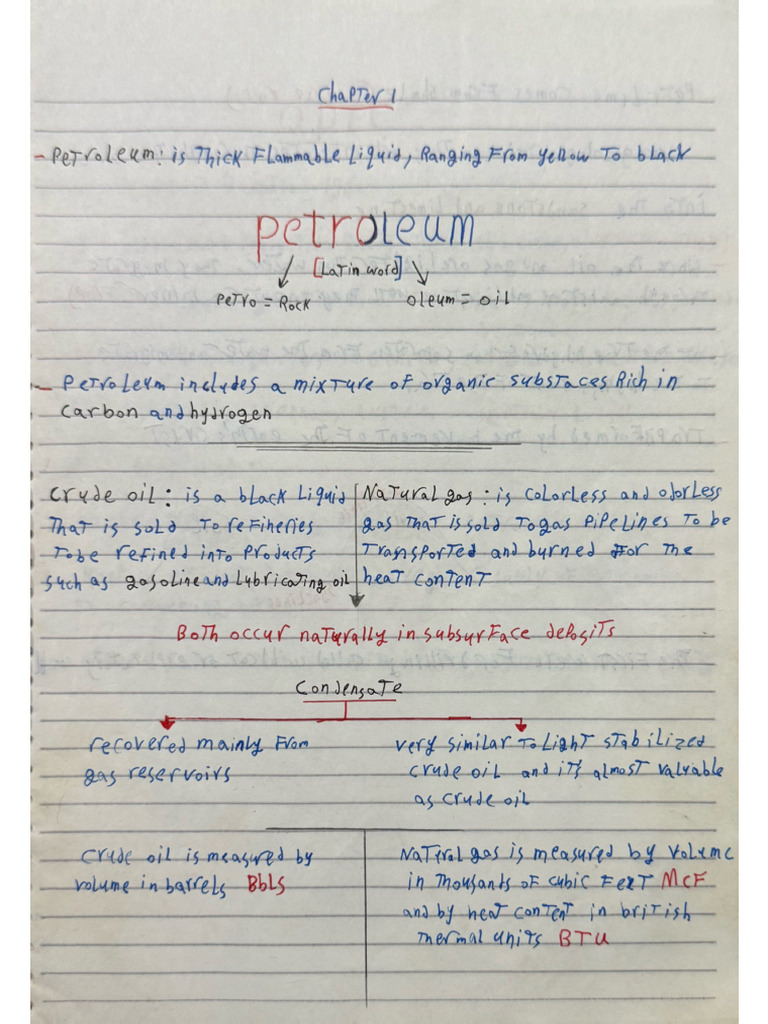 Chapter 1
- Petroleum: is Thick Flammable Liquid, Ranging From yellow To black
petroleum
[Latin word]
Petro = Rock
oleum = oil
- Petroleum includes a mixture of organic substaces Rich in
carbon and hydrogen
Crude oil: is a black Liquid
That is sold To refineries
To be refined into Products
such as gasoline and Lubricating oil
Natural gas: is colorless and odorless
gas That is sold To gas PiPeLines To be
Transported and burned For The
heat content
Both occur naturally in subsurface deposits
Condensate
recovered mainly From
gas reservoirs
very similar To Light stabilized
crude oil and it's almost valuable
as crude oil
Crude oil is measured by
volume in barrels BbLS
Natural gas is measured by volume
in Thousands of cubic Feet McF
and by heat content in british
Thermal units BTU